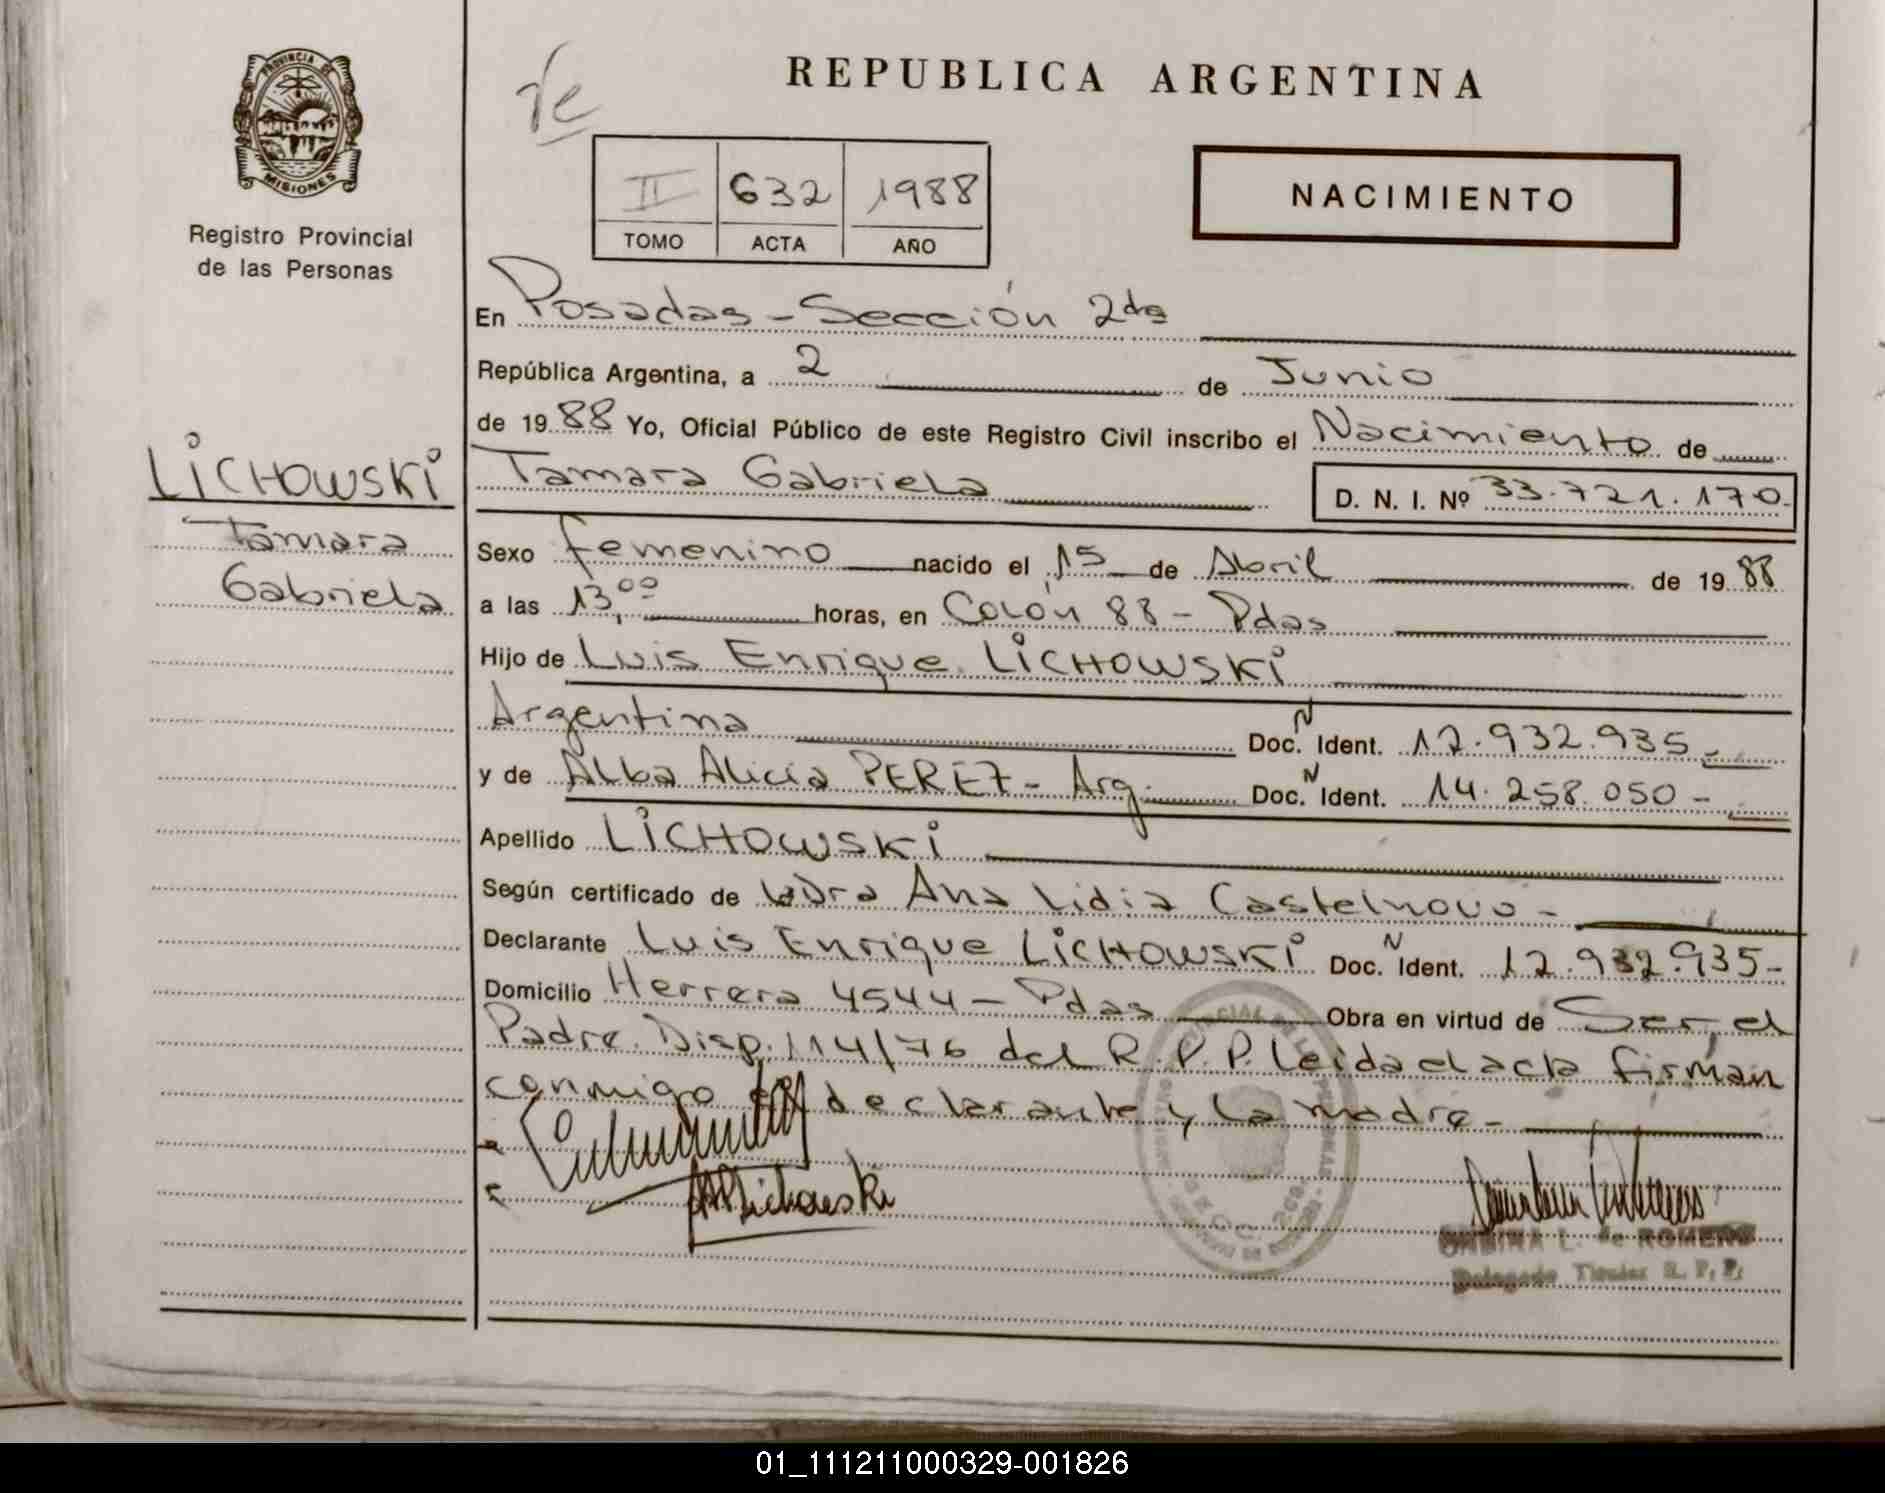 REPUBLICA ARGENTINA
PROVINCIA DE
MISIONES
Registro Provincial
de las Personas
II 632 1988
TOMO ACTA AÑO
NACIMIENTO
En Posadas - Sección 2da
República Argentina, a 2 de Junio
de 1988 Yo, Oficial Público de este Registro Civil inscribo el Nacimiento de
LiCHOWSKi
Tamara Gabriela D. N. I. Nº 33.721.170-
Tamara
Gabriela
Sexo femenino nacido el 15 de Abril de 1988
a las 13,00 horas, en Colón 88 - Pdas
Hijo de Luis Enrique LiCHOWSKi
Argentina Doc. N Ident. 12.932.935-
y de Alba Alicia PEREZ - Arg. Doc. N Ident. 14.258.050-
Apellido LiCHOWSKi
Según certificado de la Dra Ana Lidia Castelnovo -
Declarante Luis Enrique LiCHOWSKi Doc. N Ident. 12.932.935-
Domicilio Herrera 4544 - Pdas Obra en virtud de Ser el
Padre. Disp. 114/76 del R.P.P. Leida el acta firman
conmigo el declarante y la madre -
L. de ROMERO
Delegado Titular R. P. P.
01_111211000329-001826